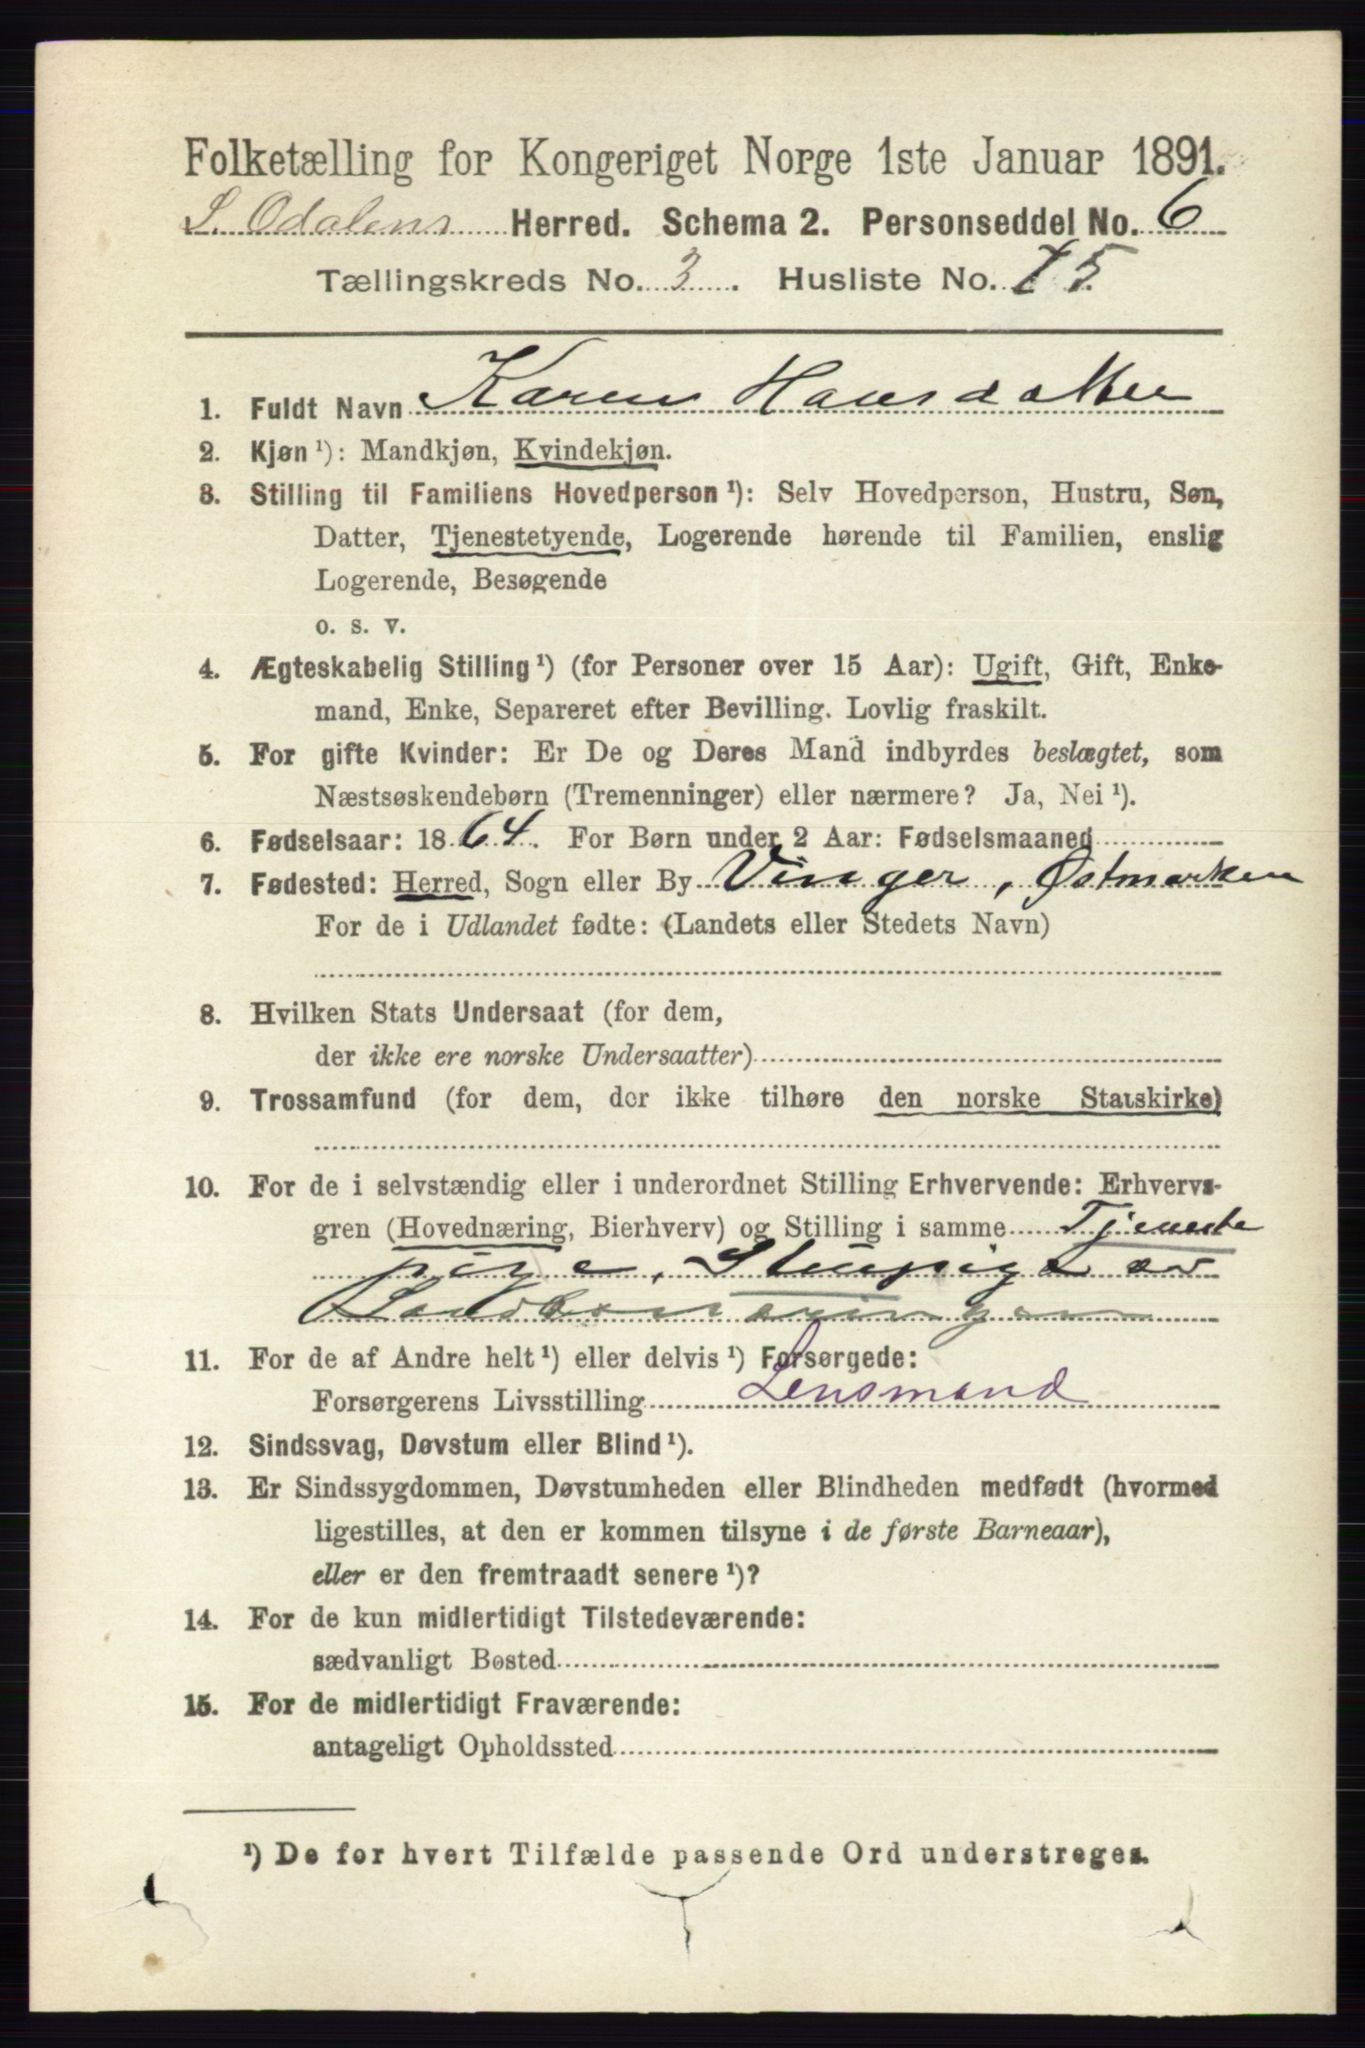 Folketælling for Kongeriget Norge 1ste Januar 1891.
S. Odalens Herred. Schema 2. Personseddel No. 6
Tællingskreds No. 3. Husliste No. 75.
1. Fuldt Navn Karen Hansdatter
2. Kjøn ¹): Mandkjøn, Kvindekjøn.
3. Stilling til Familiens Hovedperson ¹): Selv Hovedperson, Hustru, Søn,
Datter, Tjenestetyende, Logerende hørende til Familien, enslig
Logerende, Besøgende
o. s. v.
4. Ægteskabelig Stilling ¹) (for Personer over 15 Aar): Ugift, Gift, Enke-
mand, Enke, Separeret efter Bevilling. Lovlig fraskilt.
5. For gifte Kvinder: Er De og Deres Mand indbyrdes beslægtet, som
Næstsøskendebørn (Tremenninger) eller nærmere? Ja, Nei ¹).
6. Fødselsaar: 1864. For Børn under 2 Aar: Fødselsmaaned
7. Fødested: Herred, Sogn eller By Vinger, Østmarken
For de i Udlandet fødte: (Landets eller Stedets Navn)
8. Hvilken Stats Undersaat (for dem,
der ikke ere norske Undersaatter)
9. Trossamfund (for dem, der ikke tilhøre den norske Statskirke)
10. For de i selvstændig eller i underordnet Stilling Erhvervende: Erhvervs-
gren (Hovednæring, Bierhverv) og Stilling i samme Tjeneste
pige, Stuepige
11. For de af Andre helt ¹) eller delvis ¹) Forsørgede:
Forsørgerens Livsstilling Lensmand
12. Sindssvag, Døvstum eller Blind ¹).
13. Er Sindssygdommen, Døvstumheden eller Blindheden medfødt (hvormed
ligestilles, at den er kommen tilsyne i de første Barneaar),
eller er den fremtraadt senere ¹)?
14. For de kun midlertidigt Tilstedeværende:
sædvanligt Bosted
15. For de midlertidigt Fraværende:
antageligt Opholdssted
¹) De for hvert Tilfælde passende Ord understreges.